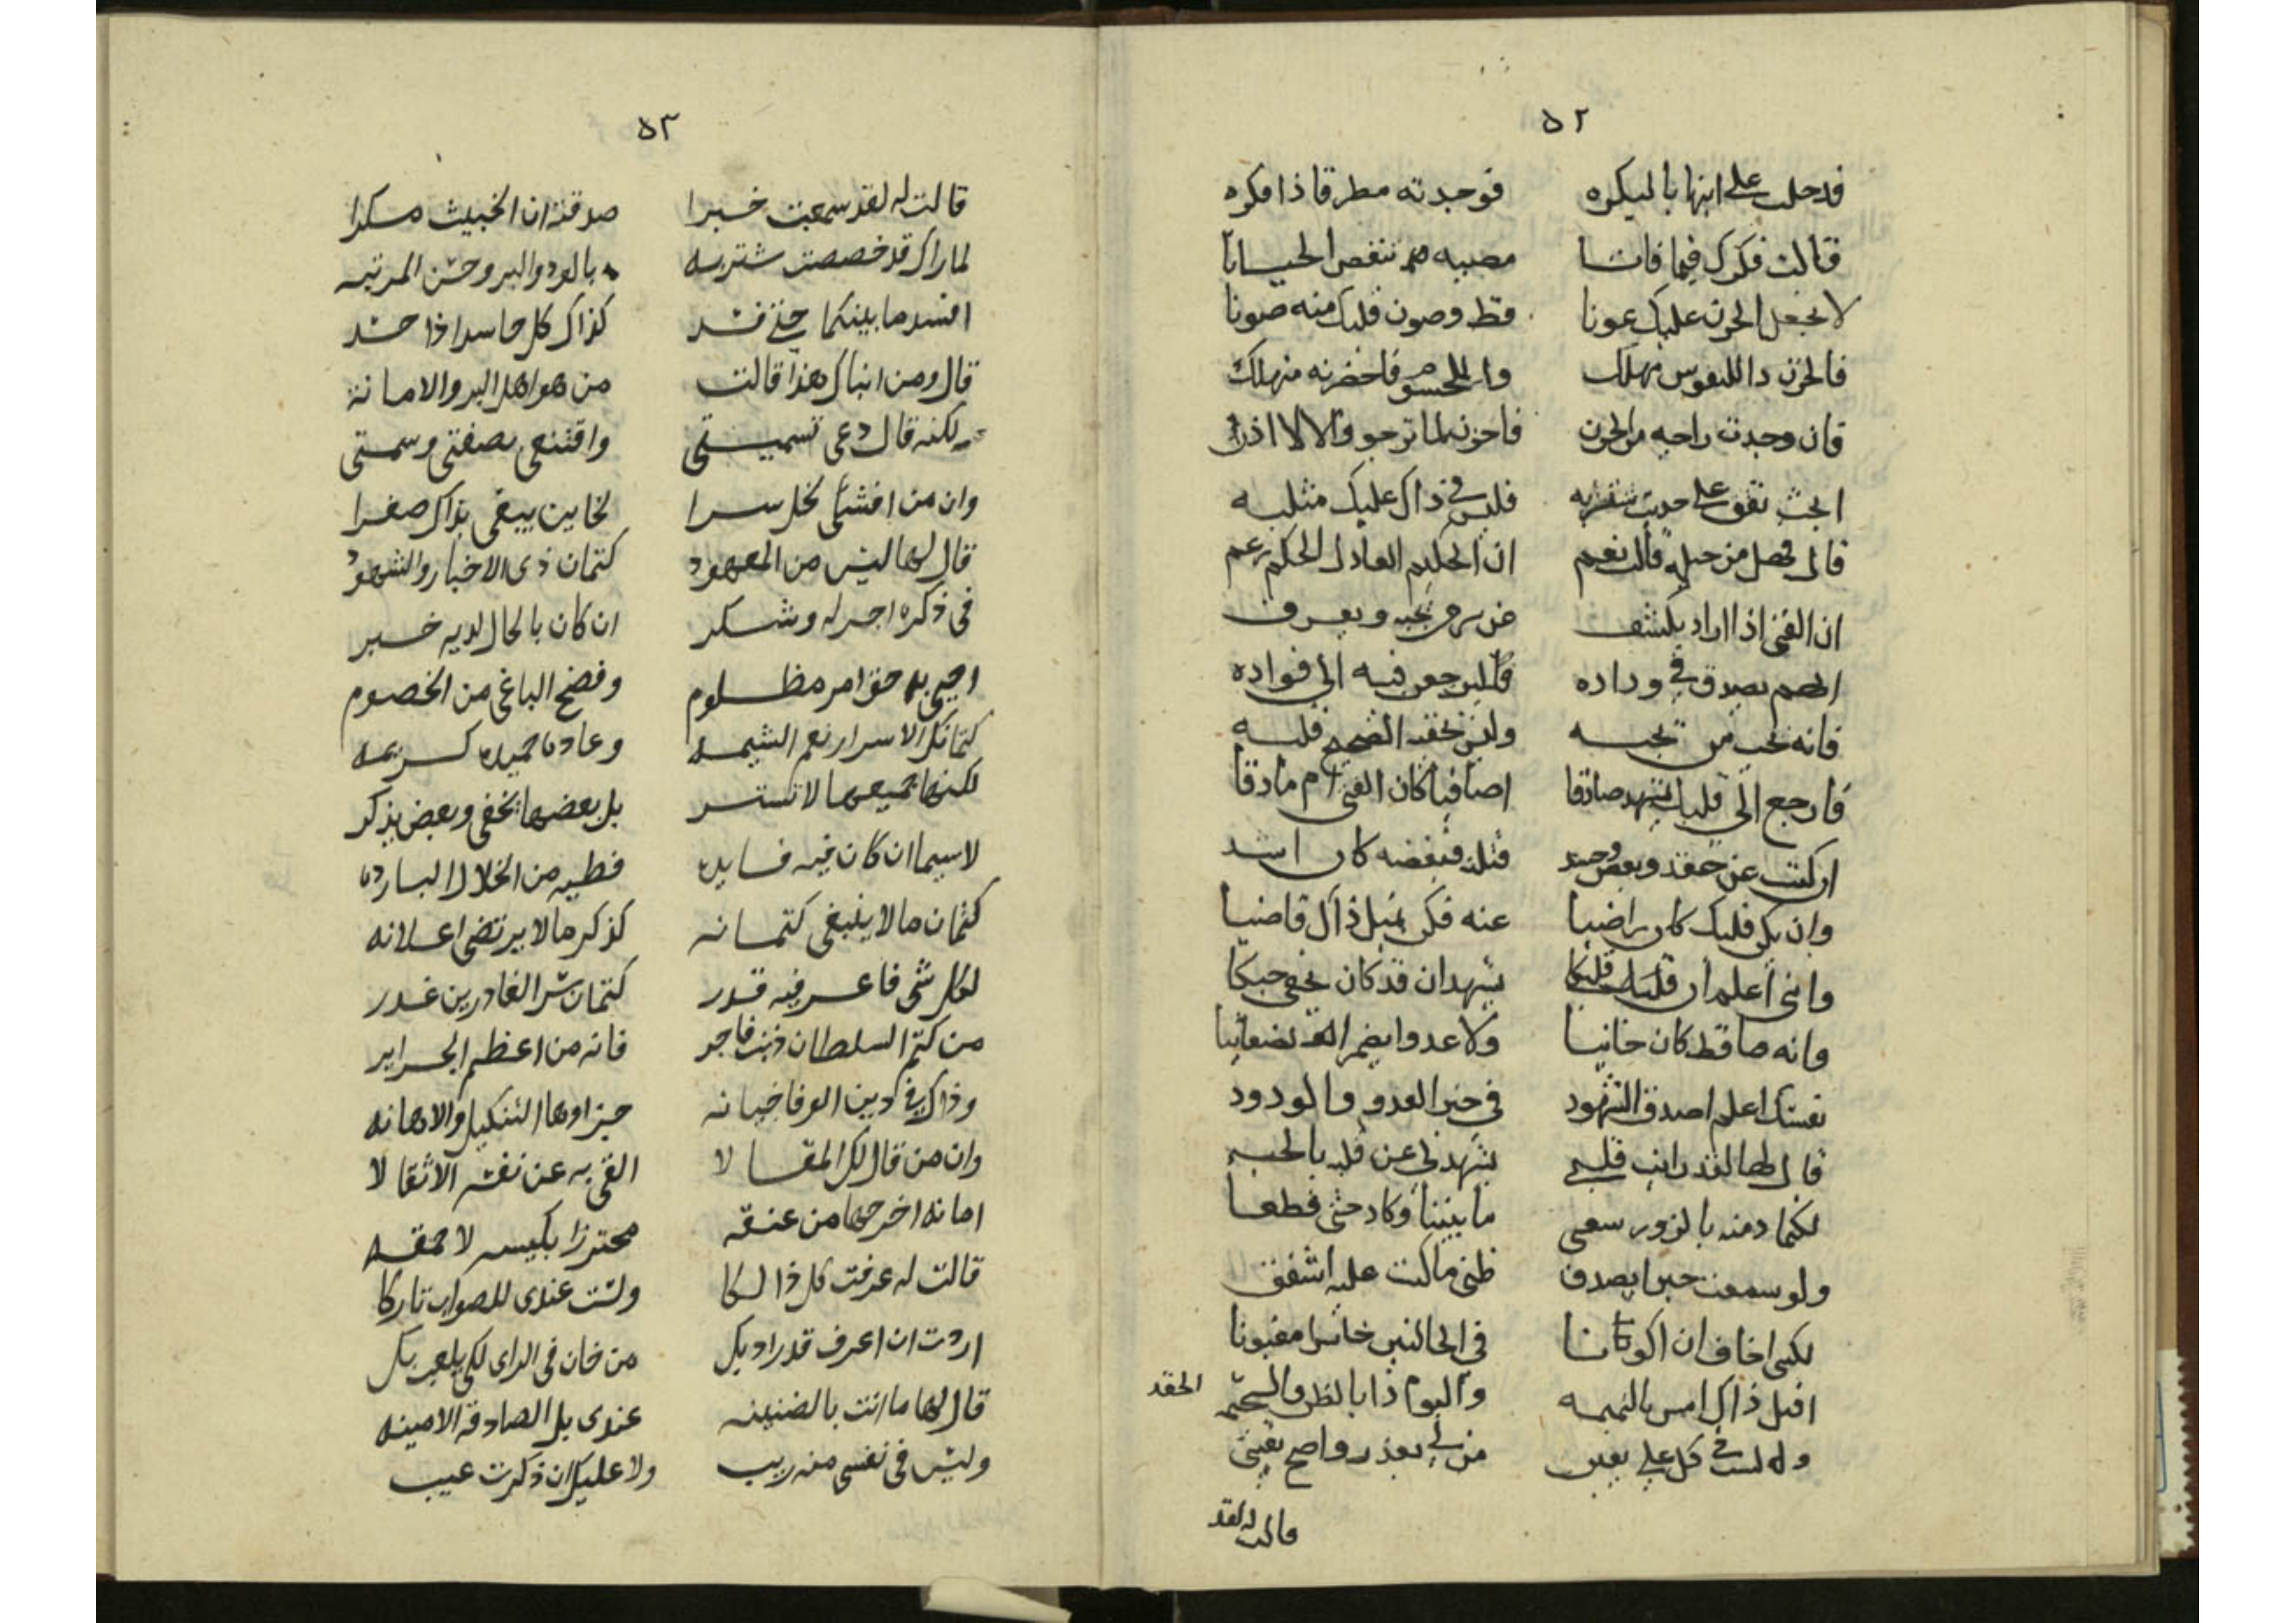 ٥٢
فدخلت على ابنها بالبكره فوجدته مطرقا ذا فكره
فقالت فكرك فيما فاتا مصيبه تنقص الحياتا
لا تجعل الحزن عليك عونا قط وصون قلبك منه صونا
فالحزن دا للنفوس مهلك وللجسوم فاخضرنه منهلك
فان وجدت راحه من الحزن فاحزن لما ترجو والا لا اذن
ابحث تقف على حديث شتربه فليس في ذاك عليك مثلبه
قال فهل من حيلة قالت نعم ان الحكيم العادل الحكم زعم
ان الفتى اذا اراد يكشف عن من يحبه ويعرف
الهم يصدق في وداده فليرجعن فيه الى فواده
فانه يحب من يحبه وليس يحقد الصحيح قلبه
فارجع الى قلبك يشهد صادقا اصافيا كان الفتى ام ماذقا
ان كنت عن حقد وبعض وحسد قتلته فبغضه كان اشد
وان يكن قلبك كان راضيا عنه فكن بمثل ذاك قاضيا
وانني اعلم ان قلبك يشهد ان قد كان يخفي حبكا
وانه ما قط كان خانيا ولا عدوا يضمر
نفسك اعلم اصدق الشهود في خبر العدو والودود
قال لها لقد رايت قلبي يشهد لي عن قلبه بالحب
لكنما دمنه بالزور سعى ما بيننا وكاد حتى قطعا
ولو سمعت خبرا يصدق ظني ما كنت عليه اشفق
لكني اخاف ان اكونا في الحالتين خاسرا مغبونا
اقتل ذاك امس بالنميمه واليوم ذا بالظن والسخيمه الحقد
وله لست في كل على يقين من لي بعذر واضح يقيني
قالت له لقد
٥٣
قالت له لقد سمعت خبرا صدقته ان الخبيث مكرا
لما راك قد خصصت شتربه بالود والبر وحسن المرتبه
افسد ما بينكما حتى فسد كذاك كل حاسد اذا حسد
قال ومن انباك هذا قالت من هو اهل البر والامانة
لكنه قال دعي تسميتي واقتنعي بصفتي وسمتي
وان من افشى لخل سرا لخاين يبقى بذاك صغرا
قال لها ليس من المعهود كتمان ذي الاخبار والشهود
في ذكره اجر له وشكر ان كان بالحال لديه خبر
احيى به حق امر مظلوم وفضح الباغي من الخصوم
كتمانك الاسرار نعم الشيمه وعادة حميده كريمه
لكنها جميعها لا تستر بل بعضها يخفى وبعض يذكر
لا سيما ان كان فيه فايده فطيه من الخلال البارده
كتمان ما لا ينبغي كتمانه كذكر ما لا يرتضى اعلانه
لكل شي فاعرفيه قدر كتمان شر الغادرين غدر
من كتم السلطان ذنب فاجر فانه من اعظم الجراير
وذاك في دين الوفا خيانه جزاوها التنكيل والاهانه
وان من قال لك المقالا القى به عن نفسه الاثقالا
امانة اخرجها من عنقه محترزا بكيسه لا حمقه
قالت له عرفت كل ذالكا ولست عندي للصواب تاركا
اردت ان اعرف قدر اد بك من خان في الراى لكي يلعب بك
قال لها ما انت بالضنينه عندي بل الصادقة الامينه
وليس في نفسي منه ريب ولا عليك ان ذكرت عيب